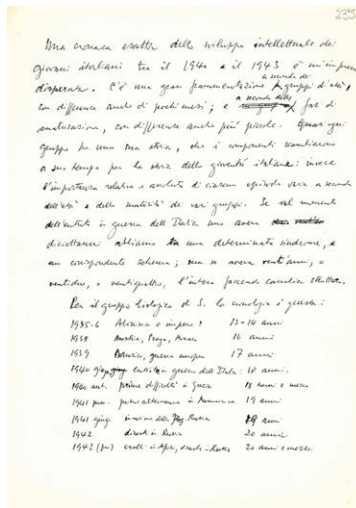 235
Una cronaca esatta dello sviluppo intellettuale dei
giovani italiani tra il 1940 e il 1943 è un'impresa
disperata. C'è una gran frammentazione
a seconda dei
gruppi d'età,
con differenze anche di pochi mesi; e
a seconda delle
fasi di
maturazione, con differenze anche più piccole. Quasi ogni
gruppo ha una sua storia, che i componenti scambiano
a suo tempo per la storia della gioventù italiana: invece
l'importanza relativa e assoluta di ciascun episodio varia a seconda
dell'età e della maturità dei vari gruppi. Se al momento
dell'entrata in guerra dell'Italia uno aveva
diciott'anni abbiamo una determinata sindrome, e
un corrispondente schema; ma se aveva vent'anni, o
ventidue, o ventiquattro, l'intera faccenda cambia struttura.
Per il gruppo biologico di S. la cronologia è questa:
1935-6 Abissinia e impero: 13-14 anni
1938 Austria, Praga, Monaco 16 anni
1939 guerra europea 17 anni
1940 giugno entrata in guerra dell'Italia: 18 anni.
1940 aut. prime difficoltà in Grecia 18 anni e mezzo
1941 19 anni
1941 giugno invasione della Russia 19 anni
1942 disastri in Russia 20 anni
1942 (fine) crolli in Africa, disastri in Russia 20 anni e mezzo